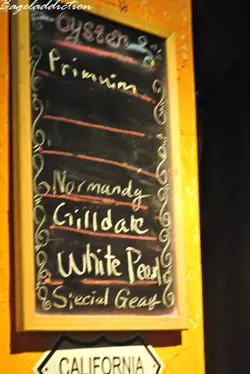 Bageladdiction
Oyster
Primuim
Normandy
Gilldale
White Pearl
Special Geay
CALIFORNIA